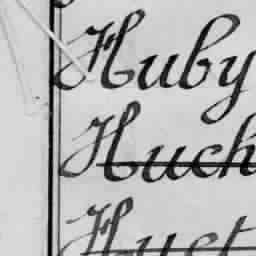 Huby
Huck
Huct